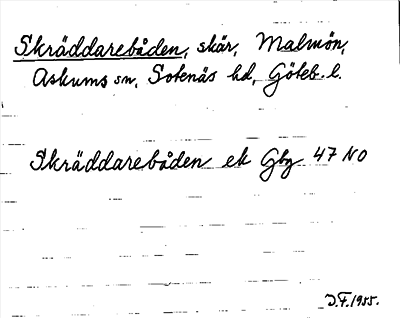 Skräddarebåden, skär, Malmön,
Askums sn, Sotenäs hd, Göteb. l.
Skräddarebåden ek Gbg 47 NO
D.F. 1955.